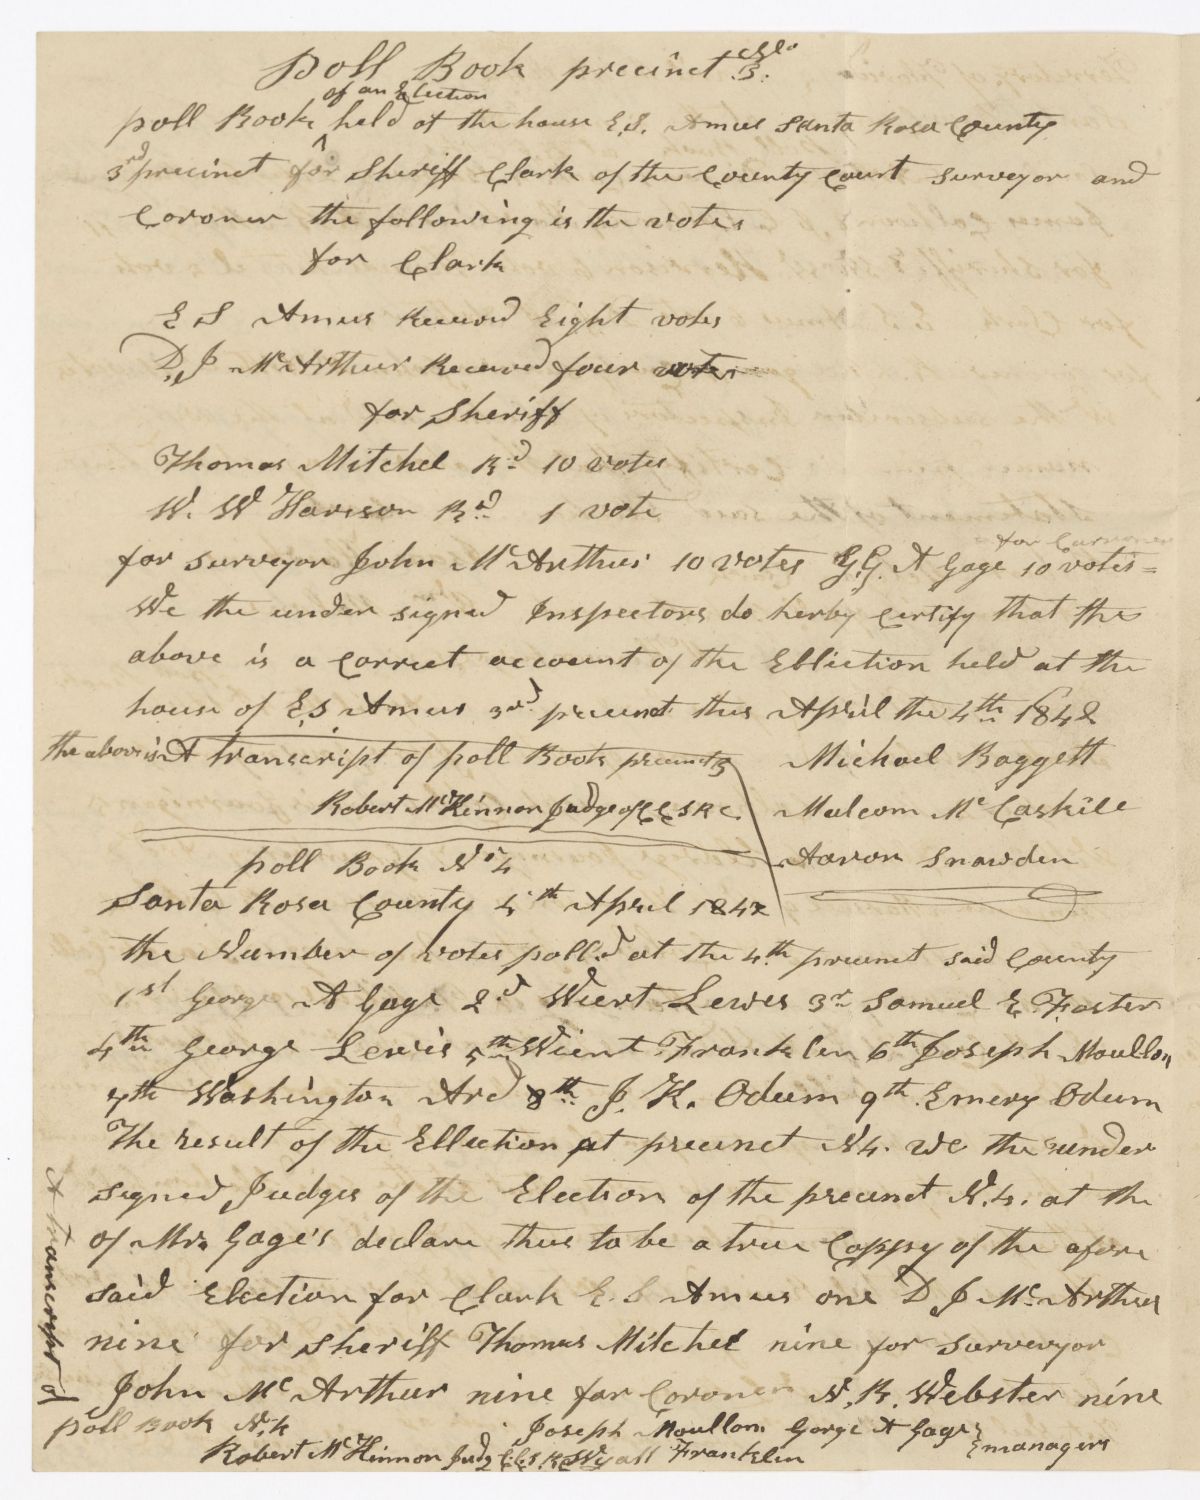 Poll Book precinct No 3.
of an Election
poll Book held at the house E,S. Amus Santa Rosa County
3rd precinct for Sheriff Clark of the County Court surveyor and
Coroner the following is the votes
for Clark
E S Amus Received Eight votes
D,J McArthur Received four votes
for Sheriff
Thomas Mitchel Rd 10 votes
W. W Harrison Rd 1 vote
for Corroner
for surveyor John McArthur 10 votes G,G, A Gage 10 votes =
We the under signed Inspectors do herby certify that the
above is a Correct account of the Elliction held at the
house of E,S Amus 3rd precinct this April the 4th 1842
the above is A transcript of poll Book precinct 3 Michael Baggett
Robert McKinnon Judge of C C S R C. Malcom McCaskile
Aaron Snowden
poll Book No 4
Santa Rosa County 4th April 1842
the Number of votes polld at the 4th precinct said County
1st George A Gage 2d Wiert Lewis 3rd Samuel E Foster
4th George Lewis 5th Wient Franklin 6th Joseph Moullon
7th Washington Ard 8th J. K. Odum 9th Emery Odum
The result of the Ellection at precinct N 4. we the under
signed Judges of the Election of the precinct N. 4. at the
of Mr. Gage's declare this to be a true Coppy of the afore
said Election for Clark E. S Amus one D J McArthur
nine for Sheriff Thomas Mitchel nine for surveyor
John McArthur nine for Coroner N. R. Webster nine
A transcript of
poll Book N. 4 Joseph Moullon Gorge A Gage
Robert McKinnon Judg Franklin managers